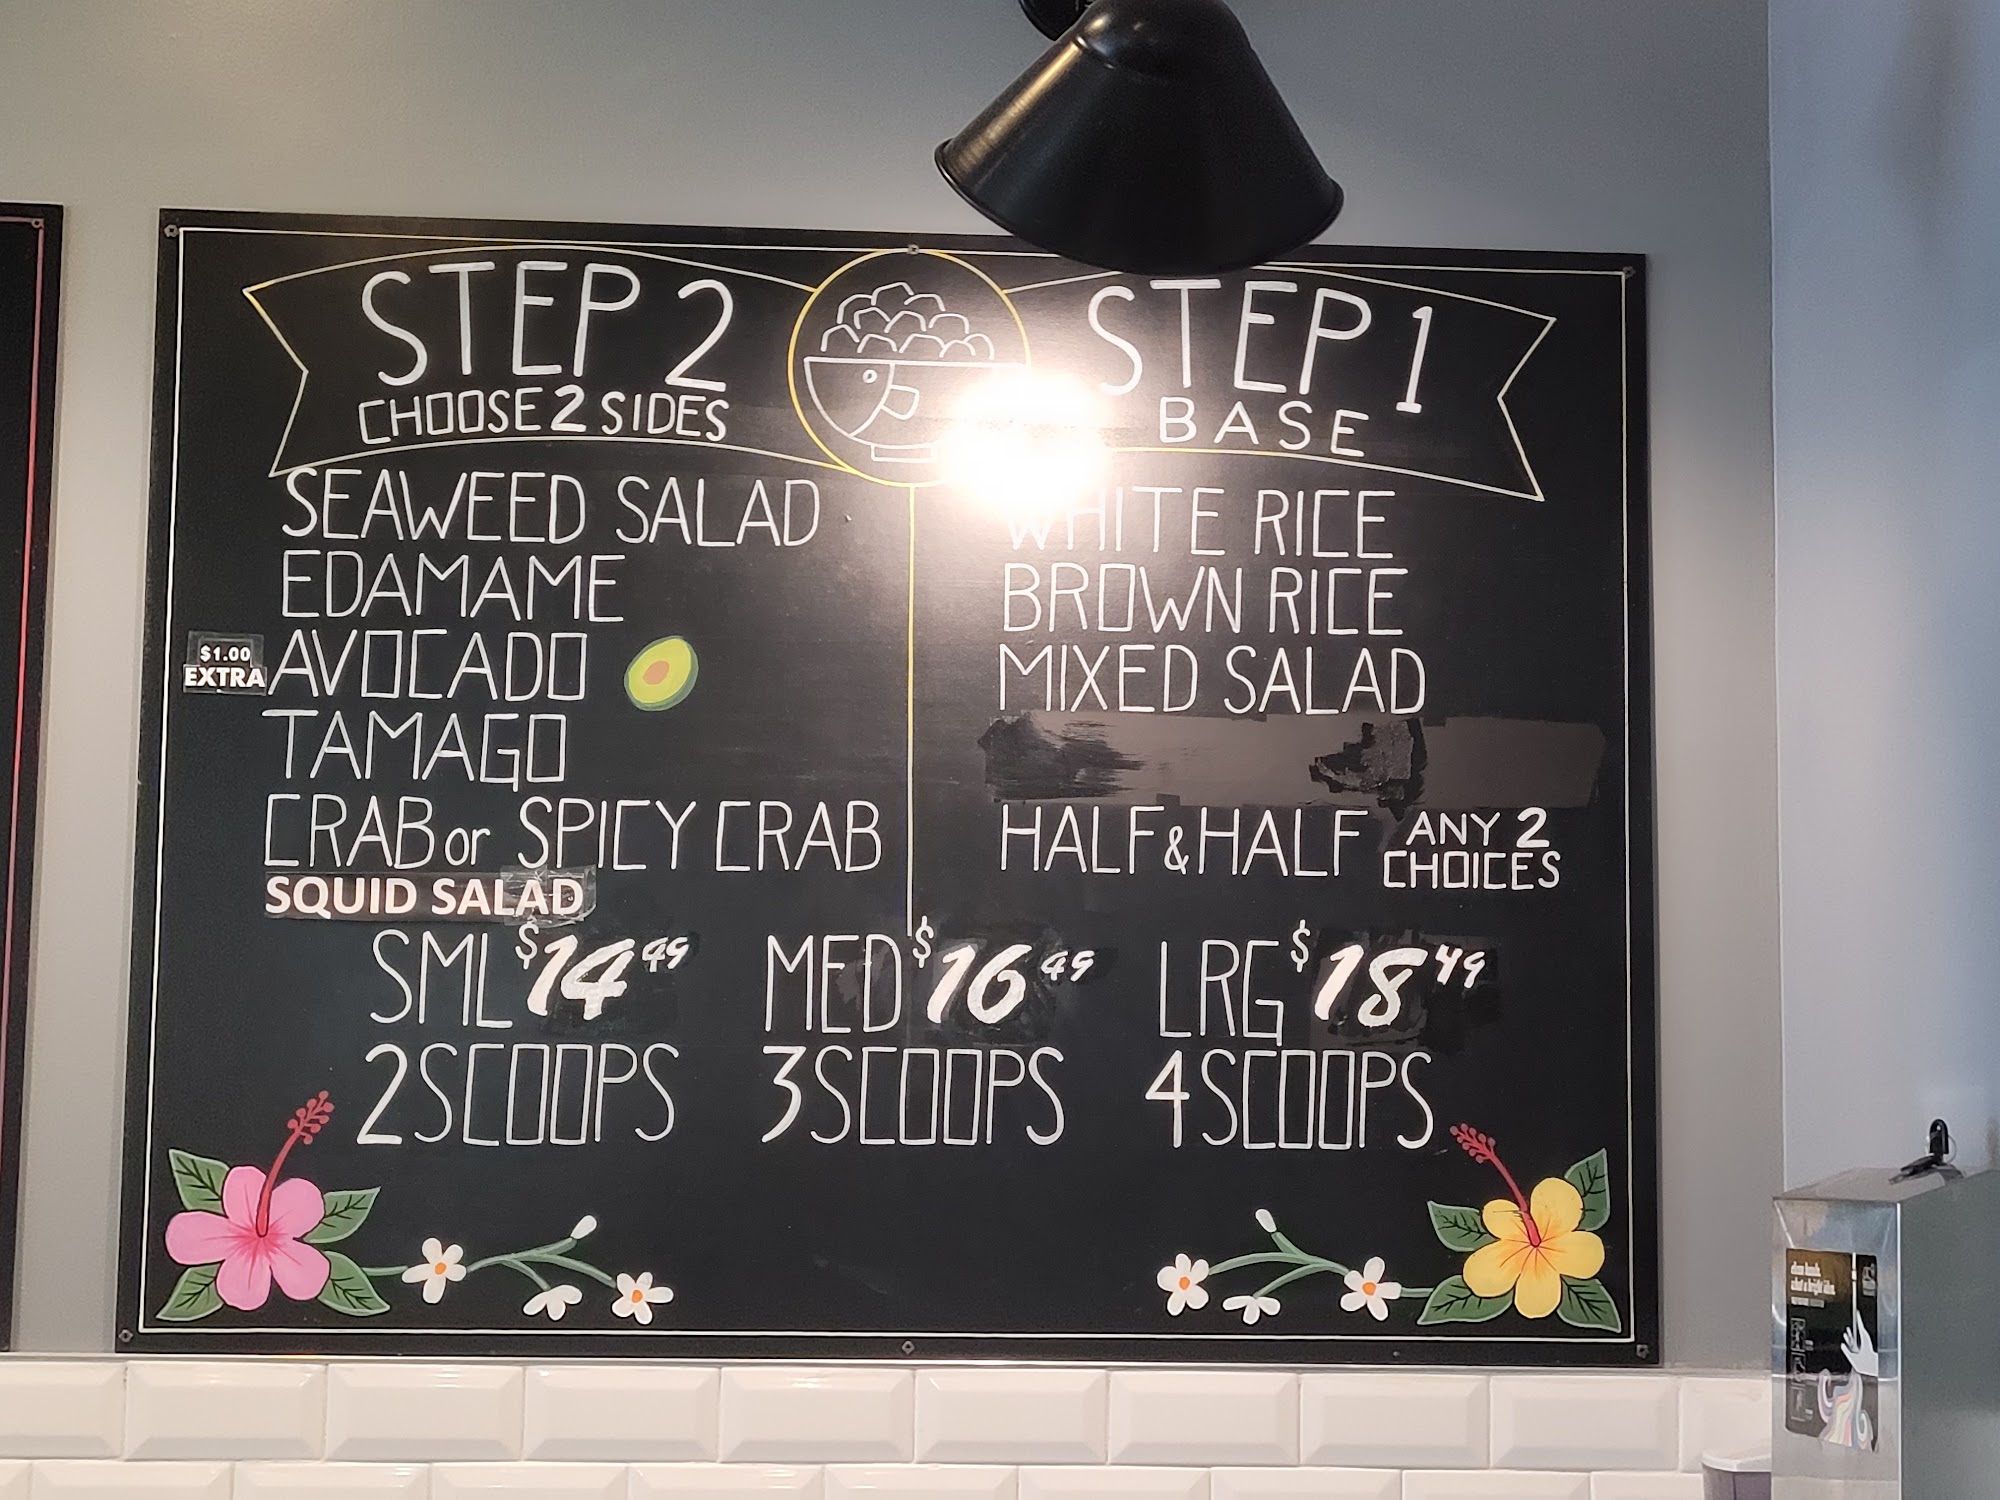 STEP 2
CHOOSE 2 SIDES
SEAWEED SALAD
EDAMAME
$1.00
EXTRA
AVOCADO
TAMAGO
CRAB or SPICY CRAB
SQUID SALAD
STEP 1
BASE
WHITE RICE
BROWN RICE
MIXED SALAD
HALF & HALF ANY 2
CHOICES
SML $14.49 MED $16.49 LRG $18.49
2 SCOOPS 3 SCOOPS 4 SCOOPS